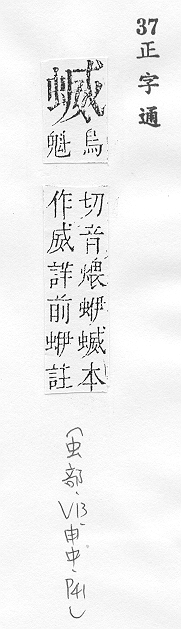 37
正字通
蝛
烏
魁
切音煨蛜蝛本
作威詳前蛜註
(虫部、V13、申中、P41)